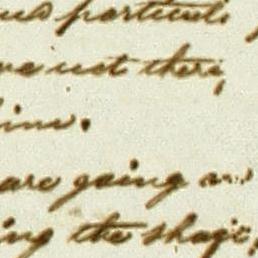 us particul
are not their
line.
are going on
ing the shape,